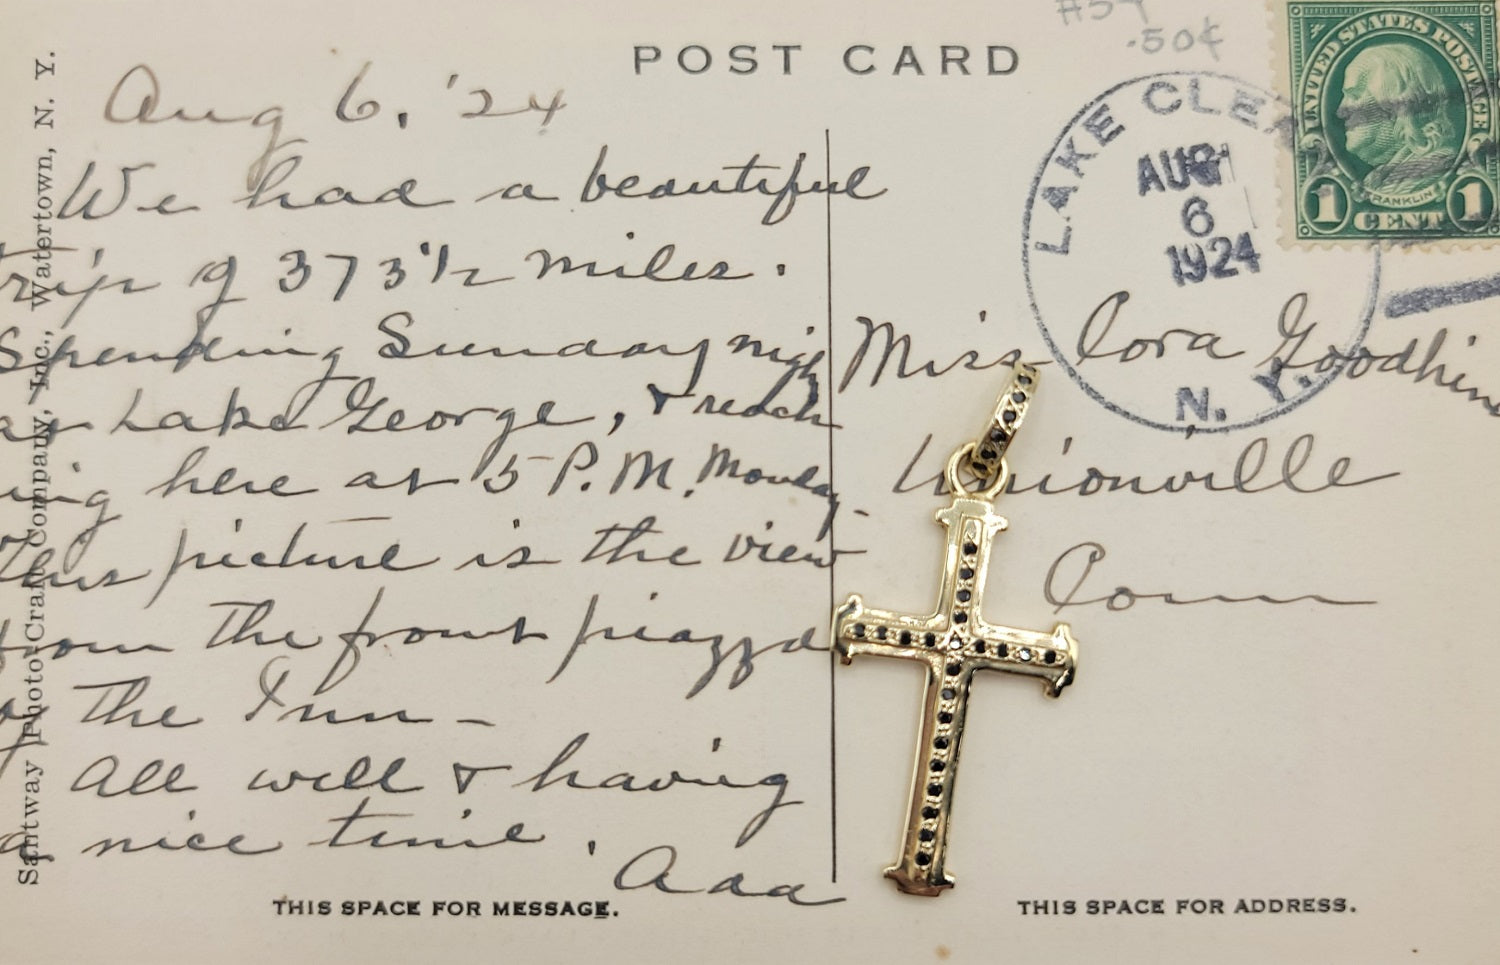 #54
.50¢
POST CARD
UNITED STATES POSTAGE
FRANKLIN
1 CENT 1
LAKE CLEA
AUG
6
1924
N. Y.
Santway Photo-Craft Company, Inc., Watertown, N. Y.
Aug 6, '24
We had a beautiful
trip of 373 1/2 miles.
Spending Sunday nigh
at Lake George, & reach
ing here at 5 P.M. Monday-
This picture is the view
from the front piazza
of the Inn -
All well & having
a nice time.
Ada
Miss Cora
Unionville
Conn
THIS SPACE FOR MESSAGE.
THIS SPACE FOR ADDRESS.